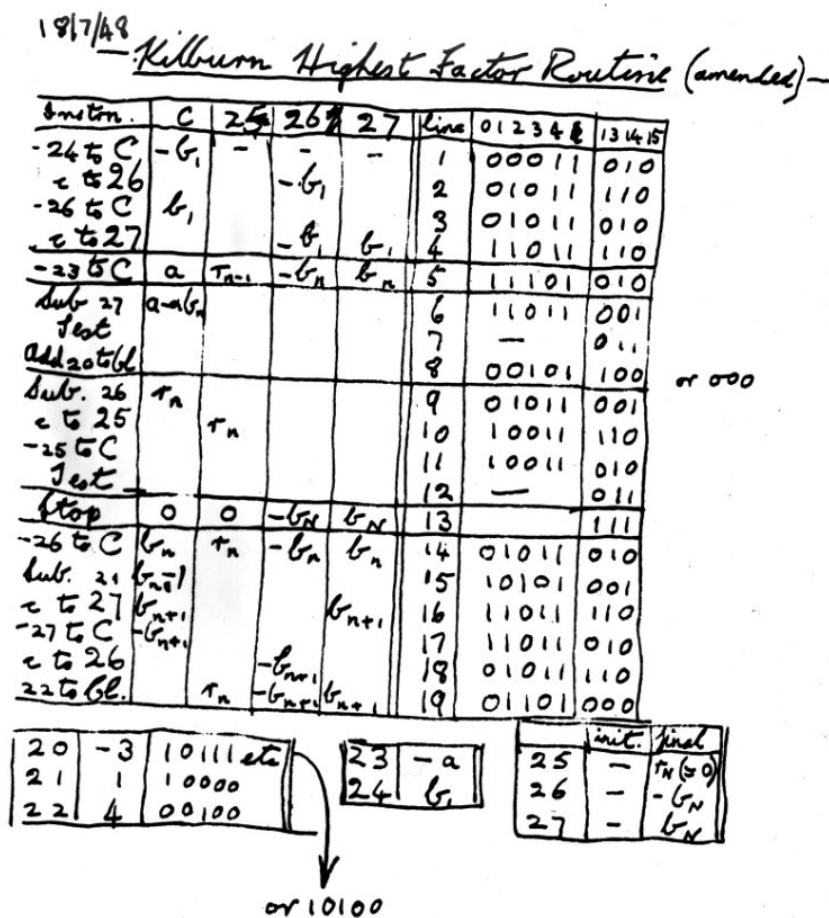 18/7/48
Kilburn Highest Factor Routine (amended) —
Instrn. C 25 26 27 line 0 1 2 3 4 13 14 15
-24 to C -b₁ - - - 1 00011 010
c to 26 -b₁ 2 01011 110
-26 to C b₁ 3 01011 010
c to 27 -b₁ b₁ 4 11011 110
-23 to C a rₙ₋₁ -bₙ bₙ 5 11101 010
Sub 27 a-bₙ 6 11011 001
Test 7 — 011
Add 20 to Cl 8 00101 100 or 000
Sub. 26 rₙ 9 01011 001
c to 25 rₙ 10 10011 110
-25 to C 11 10011 010
Test 12 — 011
Stop 0 0 -b_N b_N 13 111
-26 to C bₙ rₙ -bₙ bₙ 14 01011 010
Sub. 21 bₙ-1 15 10101 001
c to 27 bₙ₊₁ bₙ₊₁ 16 11011 110
-27 to C -bₙ₊₁ 17 11011 010
c to 26 -bₙ₊₁ 18 01011 110
22 to Cl. rₙ -bₙ₊₁ bₙ₊₁ 19 01101 000
20 -3 10111 etc
21 1 10000
22 4 00100
or 10100
23 -a
24 b₁
init. final
25 - r_N (=0)
26 - -b_N
27 - b_N